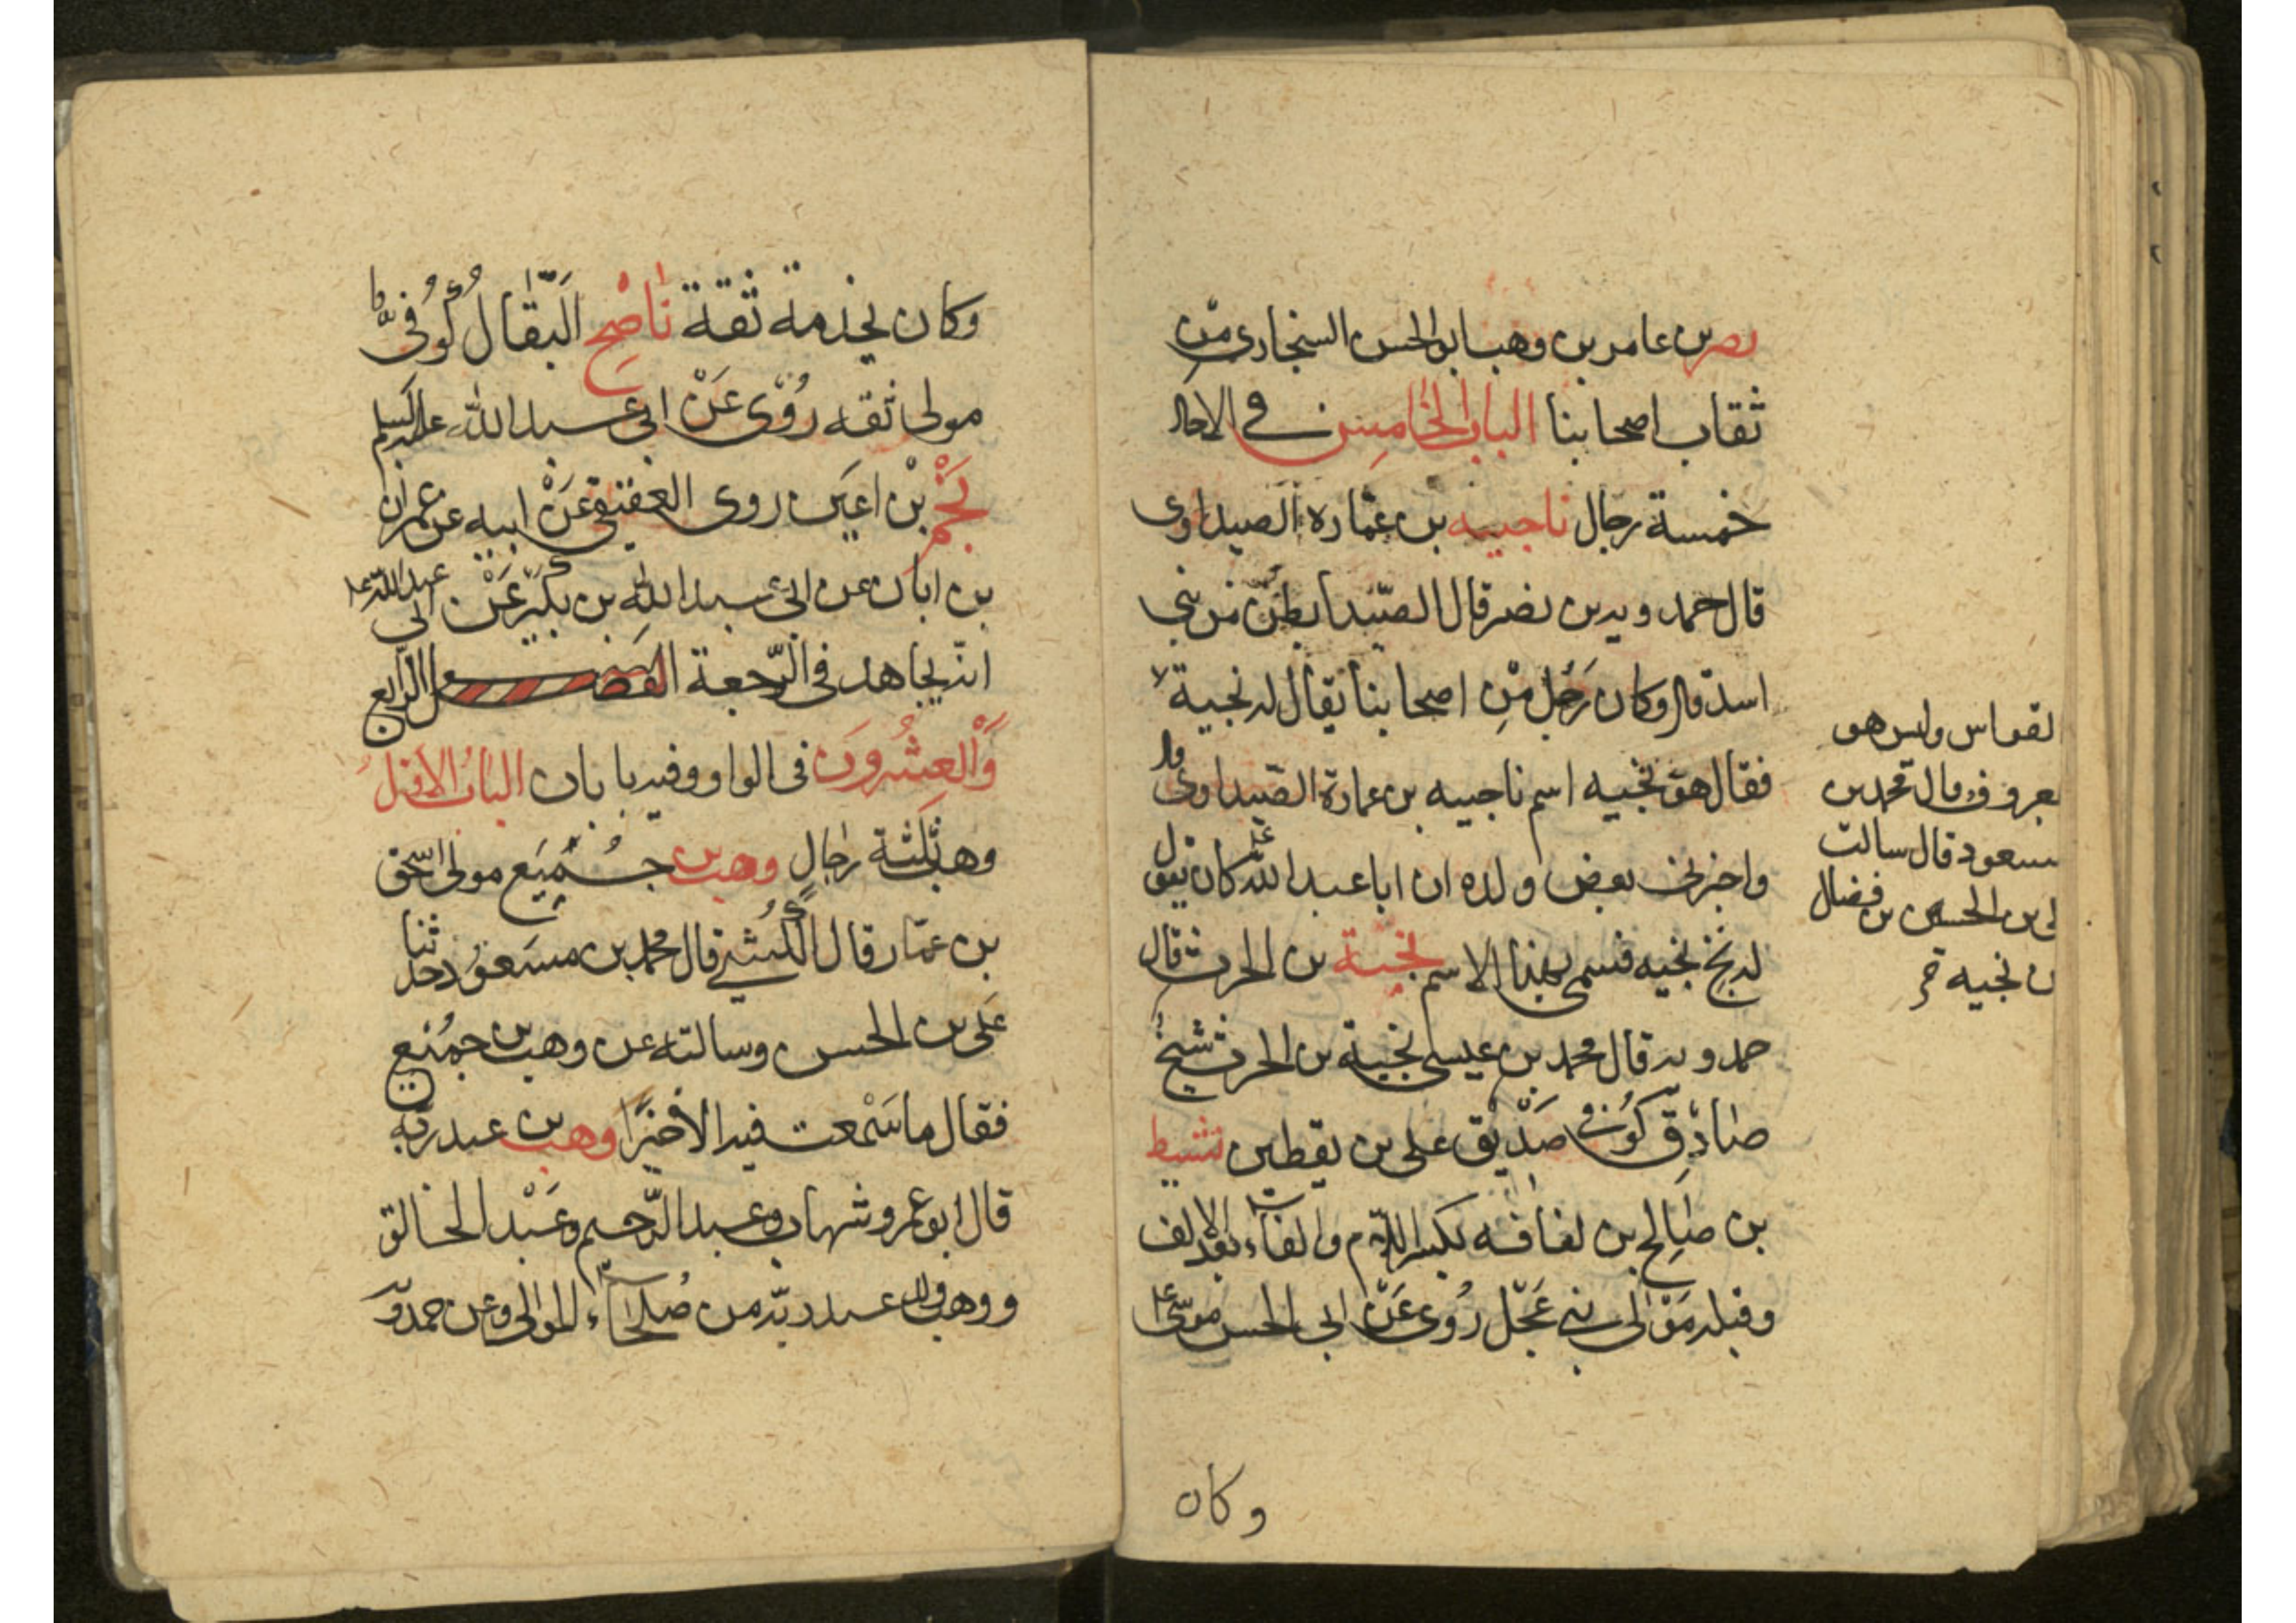 نصر بن عامر بن وهب ابو الحسن السنجاري من
ثقات اصحابنا الباب الخامس في الاحاد
خمسة رجال ناجيه بن عمارة الصيداوى
قال حمدويه بن نصر قال الصيدا بطن من بني
اسد قال وكان رجل من اصحابنا يقال له نجية
فقال هو نجيه اسم ناجييه بن عمارة الصيداوى
واخبرنى بعض ولده ان ابا عبد الله ع كان يقول
له نج نجيه فسمى بهذا الاسم نجية بن الحرث قال
حمدويه قال محمد بن عيسى نجية بن الحرث شيخ
صادق كوفي صديق على بن يقطين نشيط
بن صالح بن لفافه بكسر اللام والفاء بعد الالف
وقبله مولى بني عجل روى عن ابى الحسن موسى ع
وكان
القواس وليس هو
بمعروف قال محمد بن
مسعود قال سالت
على بن الحسين بن فضال
عن نجيه
وكان يخدمه ثقة ناصح البقال كوفى
مولى ثقه روى عن ابى عبد الله عليه السلم
نجم بن اعين روى العقيقي عن ابيه عن عمران
بن ابان عن عبد الله بن بكير عن ابى عبد الله ع
انه يجاهد فى الرجعة الفصل الرابع
والعشرون فى الواو وفيه بابان الباب الاول
وهب ثلثة رجال وهب بن جميع مولى اسحق
بن عمار قال الكشي قال محمد بن مسعود حدثنا
على بن الحسن وسالته عن وهب بن جميع
فقال ما سمعت فيه الا خيرا وهب بن عبد ربه
قال ابو عمرو شهاب وعبد الرحيم وعبد الخالق
ووهب ولد عبد ربه من صلحاء الموالى وعن حمدويه